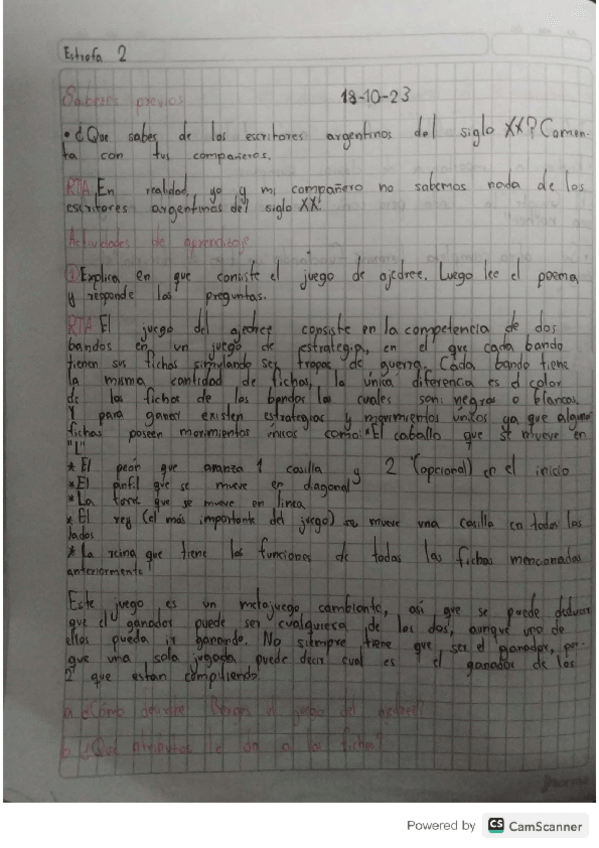 Estrofa 2
Saberes previos 18-10-23
• ¿Que sabes de los escritores argentinos del siglo XX? Comen-
ta con tus compañeros.
RTA En realidad, yo y mi compañero no sabemos nada de los
escritores argentinos del siglo XX.
Actividades de aprendizaje
① Explica en que consiste el juego de ajedrez. Luego lee el poema
y responde las preguntas.
RTA El juego del ajedrez consiste en la competencia de dos
bandos en un juego de estrategia, en el que cada bando
tienen sus fichas simulando ser tropas de guerra. Cada bando tiene
la misma cantidad de fichas, la única diferencia es el color
de las fichas de los bandos las cuales son: negras o blancas.
Y para ganar existen estrategias y movimientos unicos ya que algunas
fichas poseen movimientos únicos como: *El caballo que se mueve en
"L"
* El peón que avanza 1 casilla y 2 (opcional) en el inicio
* El alfil que se mueve en diagonal
* La torre que se mueve en linea
* El rey (el más importante del juego) se mueve una casilla en todos los
lados
* La reina que tiene las funciones de todas las fichas mencionadas
anteriormente
Este juego es un metajuego cambiante, así que se puede deducir
que el ganador puede ser cualquiera de los dos, aunque uno de
ellos pueda ir ganando. No siempre tiene que ser el ganador, por-
que una sola jugada puede decir cual es el ganador de los
2 que estan compitiendo.
a ¿Cómo describe Borges el juego del ajedrez?
b ¿Qué atributos le da a las fichas?
Norma
Powered by CS CamScanner